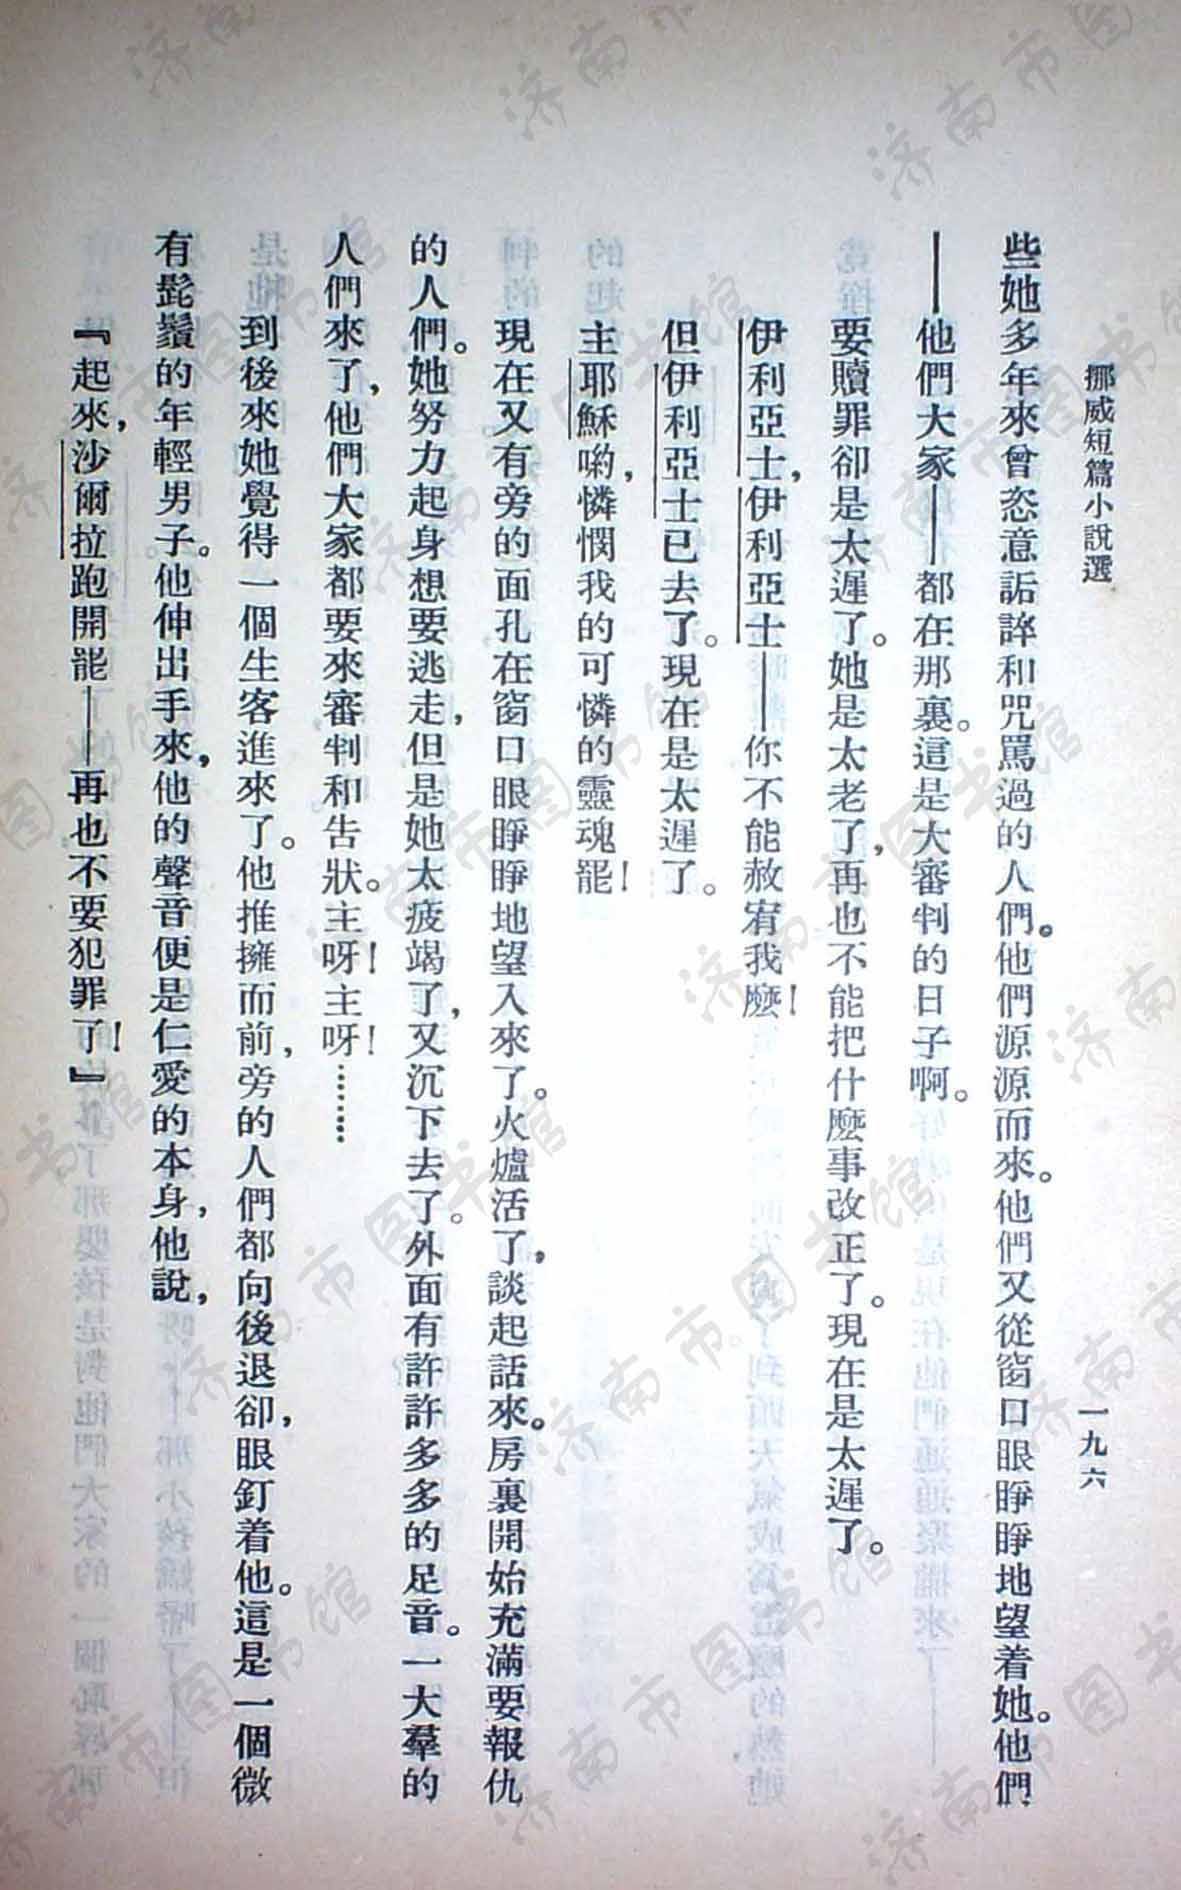 挪威短篇小說選
一九六
些她多年來曾恣意詬誶和咒罵過的人們。他們源源而來。他們又從窗口眼睜睜地望着她。他們
——他們大家——都在那裏。這是大審判的日子啊。
要贖罪卻是太遲了。她是太老了，再也不能把什麼事改正了。現在是太遲了。
伊利亞士，伊利亞士——你不能赦宥我麼！
但伊利亞士已去了。現在是太遲了。
主耶穌喲，憐憫我的可憐的靈魂罷！
現在又有旁的面孔在窗口眼睜睜地望入來了。火爐活了，談起話來。房裏開始充滿要報仇
的人們。她努力起身想要逃走，但是她太疲竭了，又沉下去了。外面有許許多多的足音。一大羣的
人們來了，他們大家都要來審判和告狀。主呀！主呀！……
到後來她覺得一個生客進來了。他推擁而前，旁的人們都向後退卻，眼釘着他。這是一個微
有髭鬚的年輕男子。他伸出手來，他的聲音便是仁愛的本身，他說，
『起來，沙爾拉跑開罷——再也不要犯罪了！』
济南市图书馆